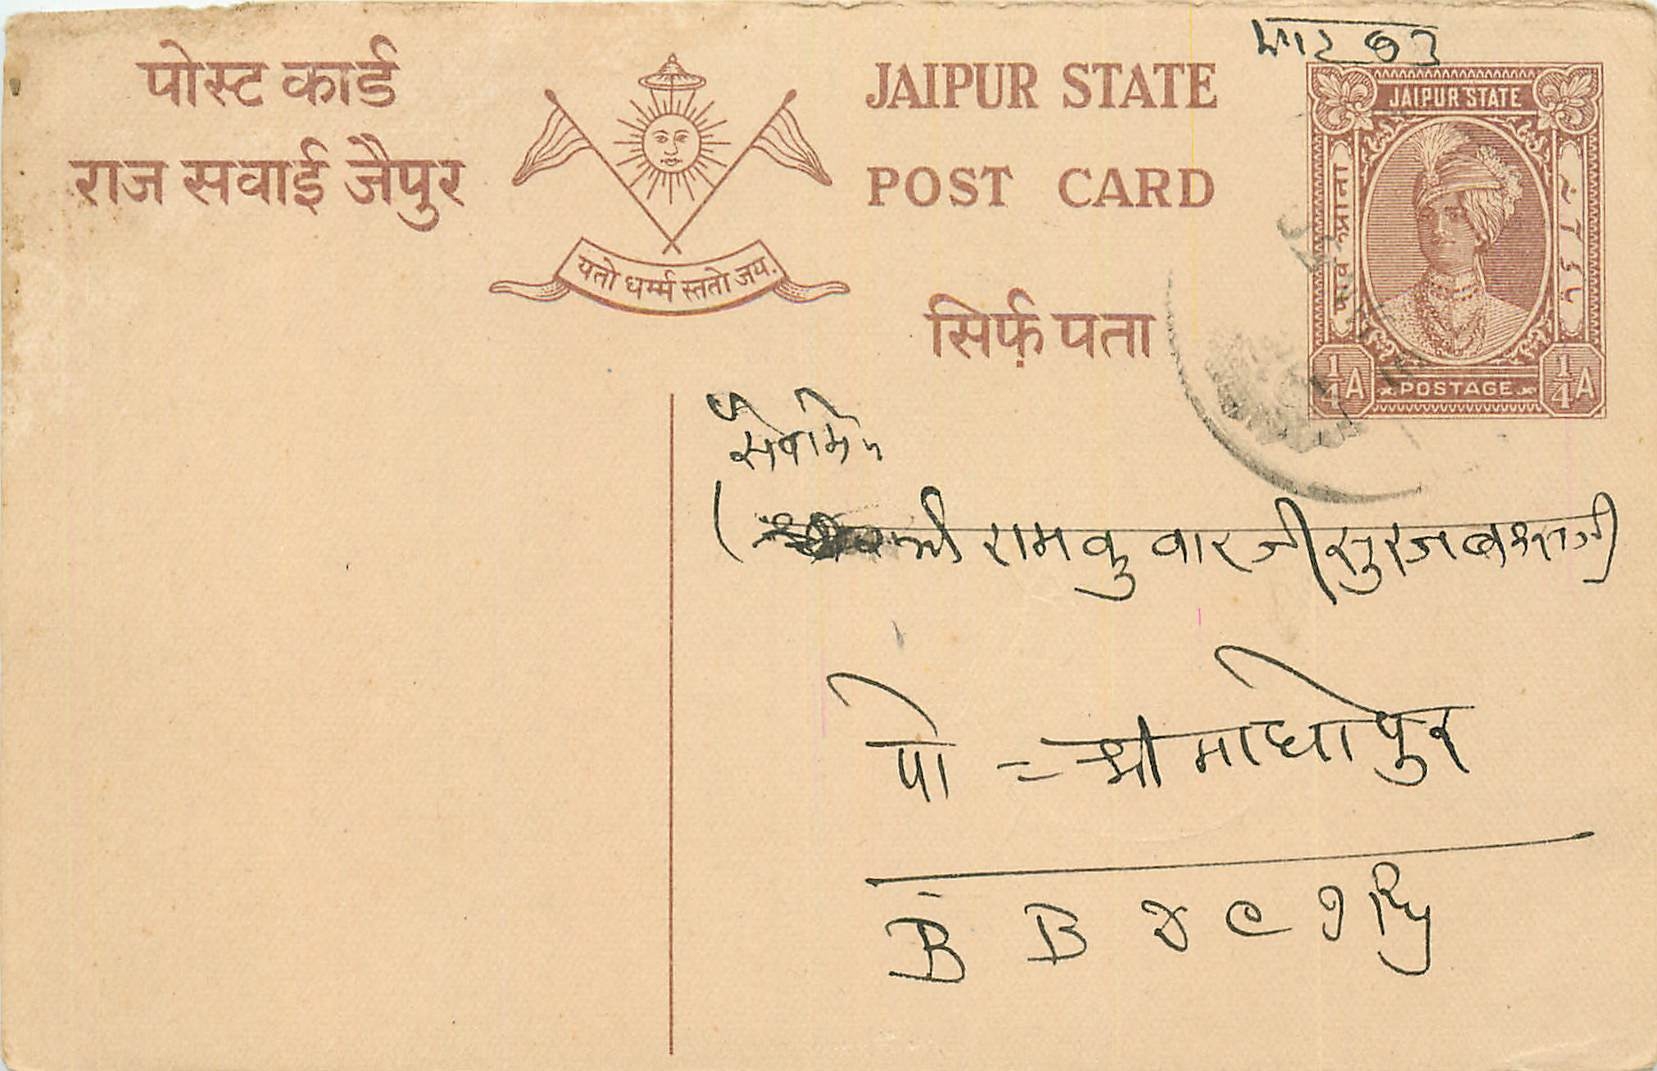 पोस्ट कार्ड
राज सवाई जैपुर
यतो धर्म्म स्ततो जय.
JAIPUR STATE
POST CARD
सिर्फ़ पता
JAIPUR STATE
पाव आना
1/4 A POSTAGE 1/4 A
सेवामें
श्री रामकुवारजी सुरजबक्शजी
पो = श्री माधोपुर
B B